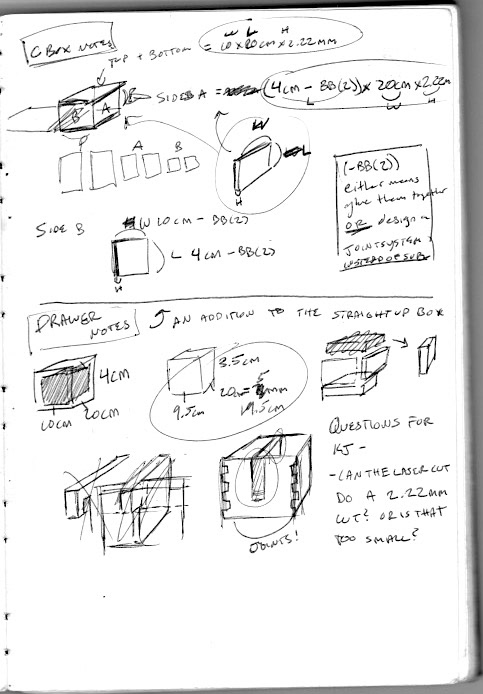 C BOX NOTES
TOP + BOTTOM = 10 x 20cm x 2.22mm
W L H
SIDES A = (4cm - BB(2)) x 20cm x 2.22m
L W H
B A
A B
W
L
H
(-BB(2))
either means
glue them together
OR design a
JOINT SYSTEM
INSTEAD OF SUB.
SIDE B
W 10cm - BB(2)
L 4cm - BB(2)
H
DRAWER NOTES
AN ADDITION TO THE STRAIGHT UP BOX
4cm
10cm 20cm
3.5cm
9.5cm
19.5cm
QUESTIONS FOR
KJ -
- CAN THE LASER CUT
DO A 2.22MM
CUT? OR IS THAT
TOO SMALL?
JOINTS!